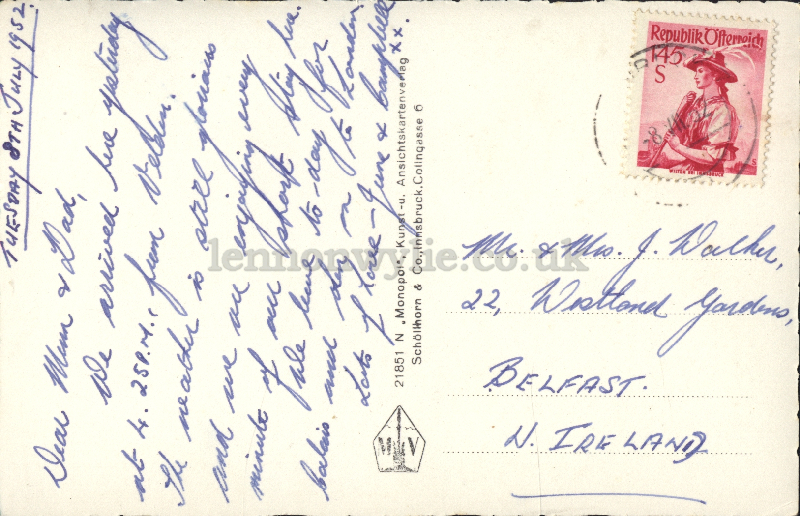 TUESDAY 8TH JULY 1952.
Dear Mum & Dad,
We arrived here yesterday
at 4.25 P.M., from Velden.
The weather is still glorious
and we are enjoying every
minute of our short stay here.
We leave to-day for
Calais and day on to London.
Lots of Love – June & Campbell
xx.
21851 N „Monopol", Kunst- u. Ansichtskartenverlag
Schöllhorn & Co., Innsbruck, Colingasse 6
Republik Österreich
1'45
S
8.VII.52
Mr. & Mrs. J. Walker,
22, Westland Gardens,
BELFAST.
N. IRELAND
lennonwylie.co.uk